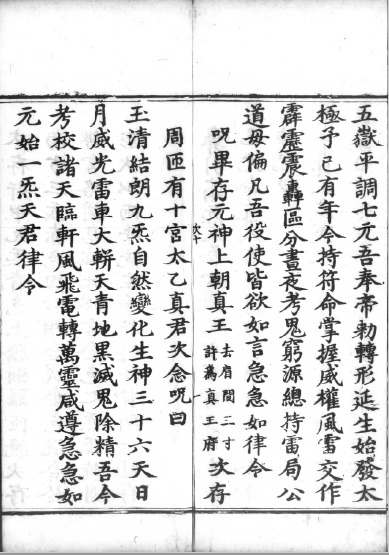 五嶽平調七元吾奉帝勅轉形延生始發太
極予已有年今持符命掌握威權風雷交作
霹靂震轟區分晝夜考鬼窮源總持雷局公
道毋偏凡吾役使皆欲如言急急如律令
呪畢存元神上朝真王去眉間三寸許為真王府次存
周匝有十宮太乙真君次念呪曰
玉清結朗九炁自然變化生神三十六天日
月威光雷車大輧天青地黑滅鬼除精吾今
考校諸天臨軒風飛電轉萬靈咸遵急急如
元始一炁天君律令